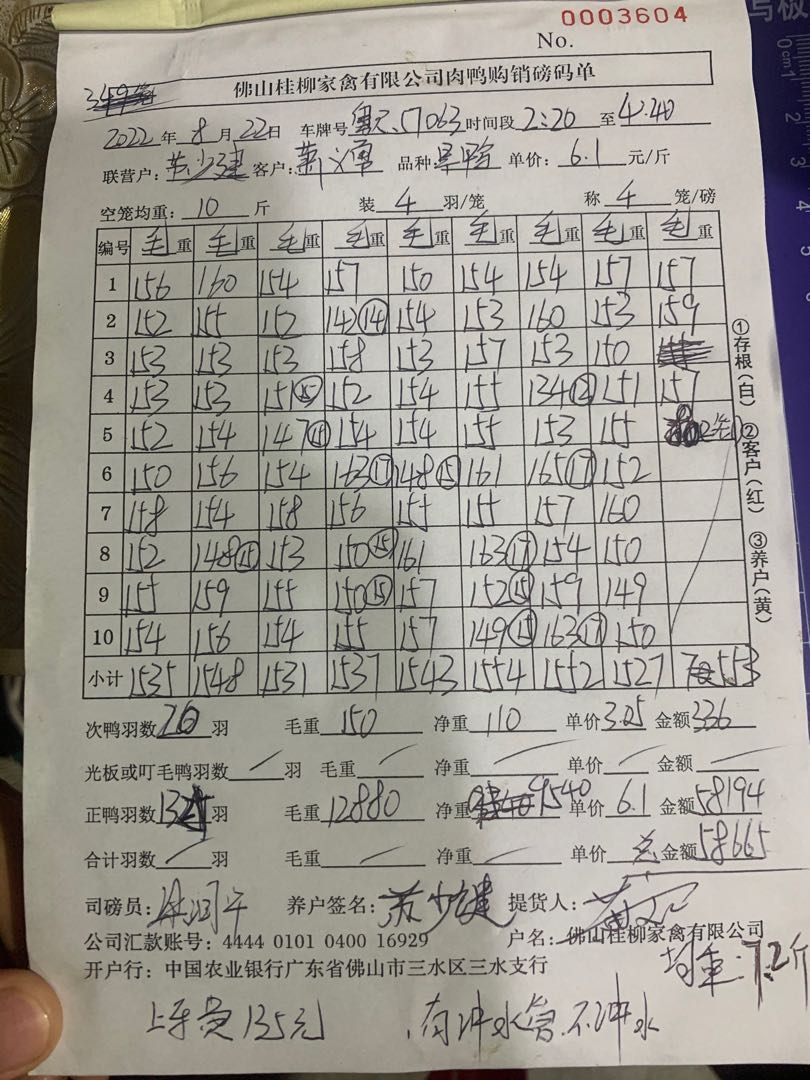 0003604
No.
佛山桂柳家禽有限公司肉鸭购销磅码单
2022年8月22日 车牌号 57063 时间段2:20至4:40
联营户:苏少建 客户:萧文勇 品种 单价:6.1元/斤
空笼均重:10斤 装4羽/笼 称4笼/磅
编号 毛重 毛重 毛重 毛重 毛重 毛重 毛重 毛重 毛重
1 156 160 154 157 150 154 154 157 157
2 152 155 152 142⑭ 154 153 160 153 159
3 153 153 153 158 153 157 153 150
4 153 153 151⑮ 152 154 155 134⑫ 151 157
5 152 154 147⑭ 154 154 155 153 155
6 150 156 154 163⑰ 148⑮ 161 165⑰ 152
7 158 154 158 156 155 155 157 160
8 152 148⑮ 153 150⑮ 161 163⑰ 154 150
9 155 159 155 150⑮ 157 152⑮ 159 149
10 154 156 154 155 157 149⑮ 163⑰ 150
小计 1535 1548 1531 1537 1543 1554 1552 1527 553
①存根(白) ②客户(红) ③养户(黄)
次鸭羽数 羽 毛重150 净重110 单价3.05 金额336
光板或叮毛鸭羽数/羽 毛重/ 净重/ 单价/ 金额/
正鸭羽数 羽 毛重12880 净重9540 单价6.1 金额58194
合计羽数/羽 毛重/ 净重/ 单价 总金额58665
司磅员: 养户签名:苏少建 提货人:
公司汇款账号:4444 0101 0400 16929 户名:佛山桂柳家禽有限公司
开户行:中国农业银行广东省佛山市三水区三水支行
均重:7.2斤
上车费135元 冲水 不冲水
0 cm 1 2 3 4 5
写板